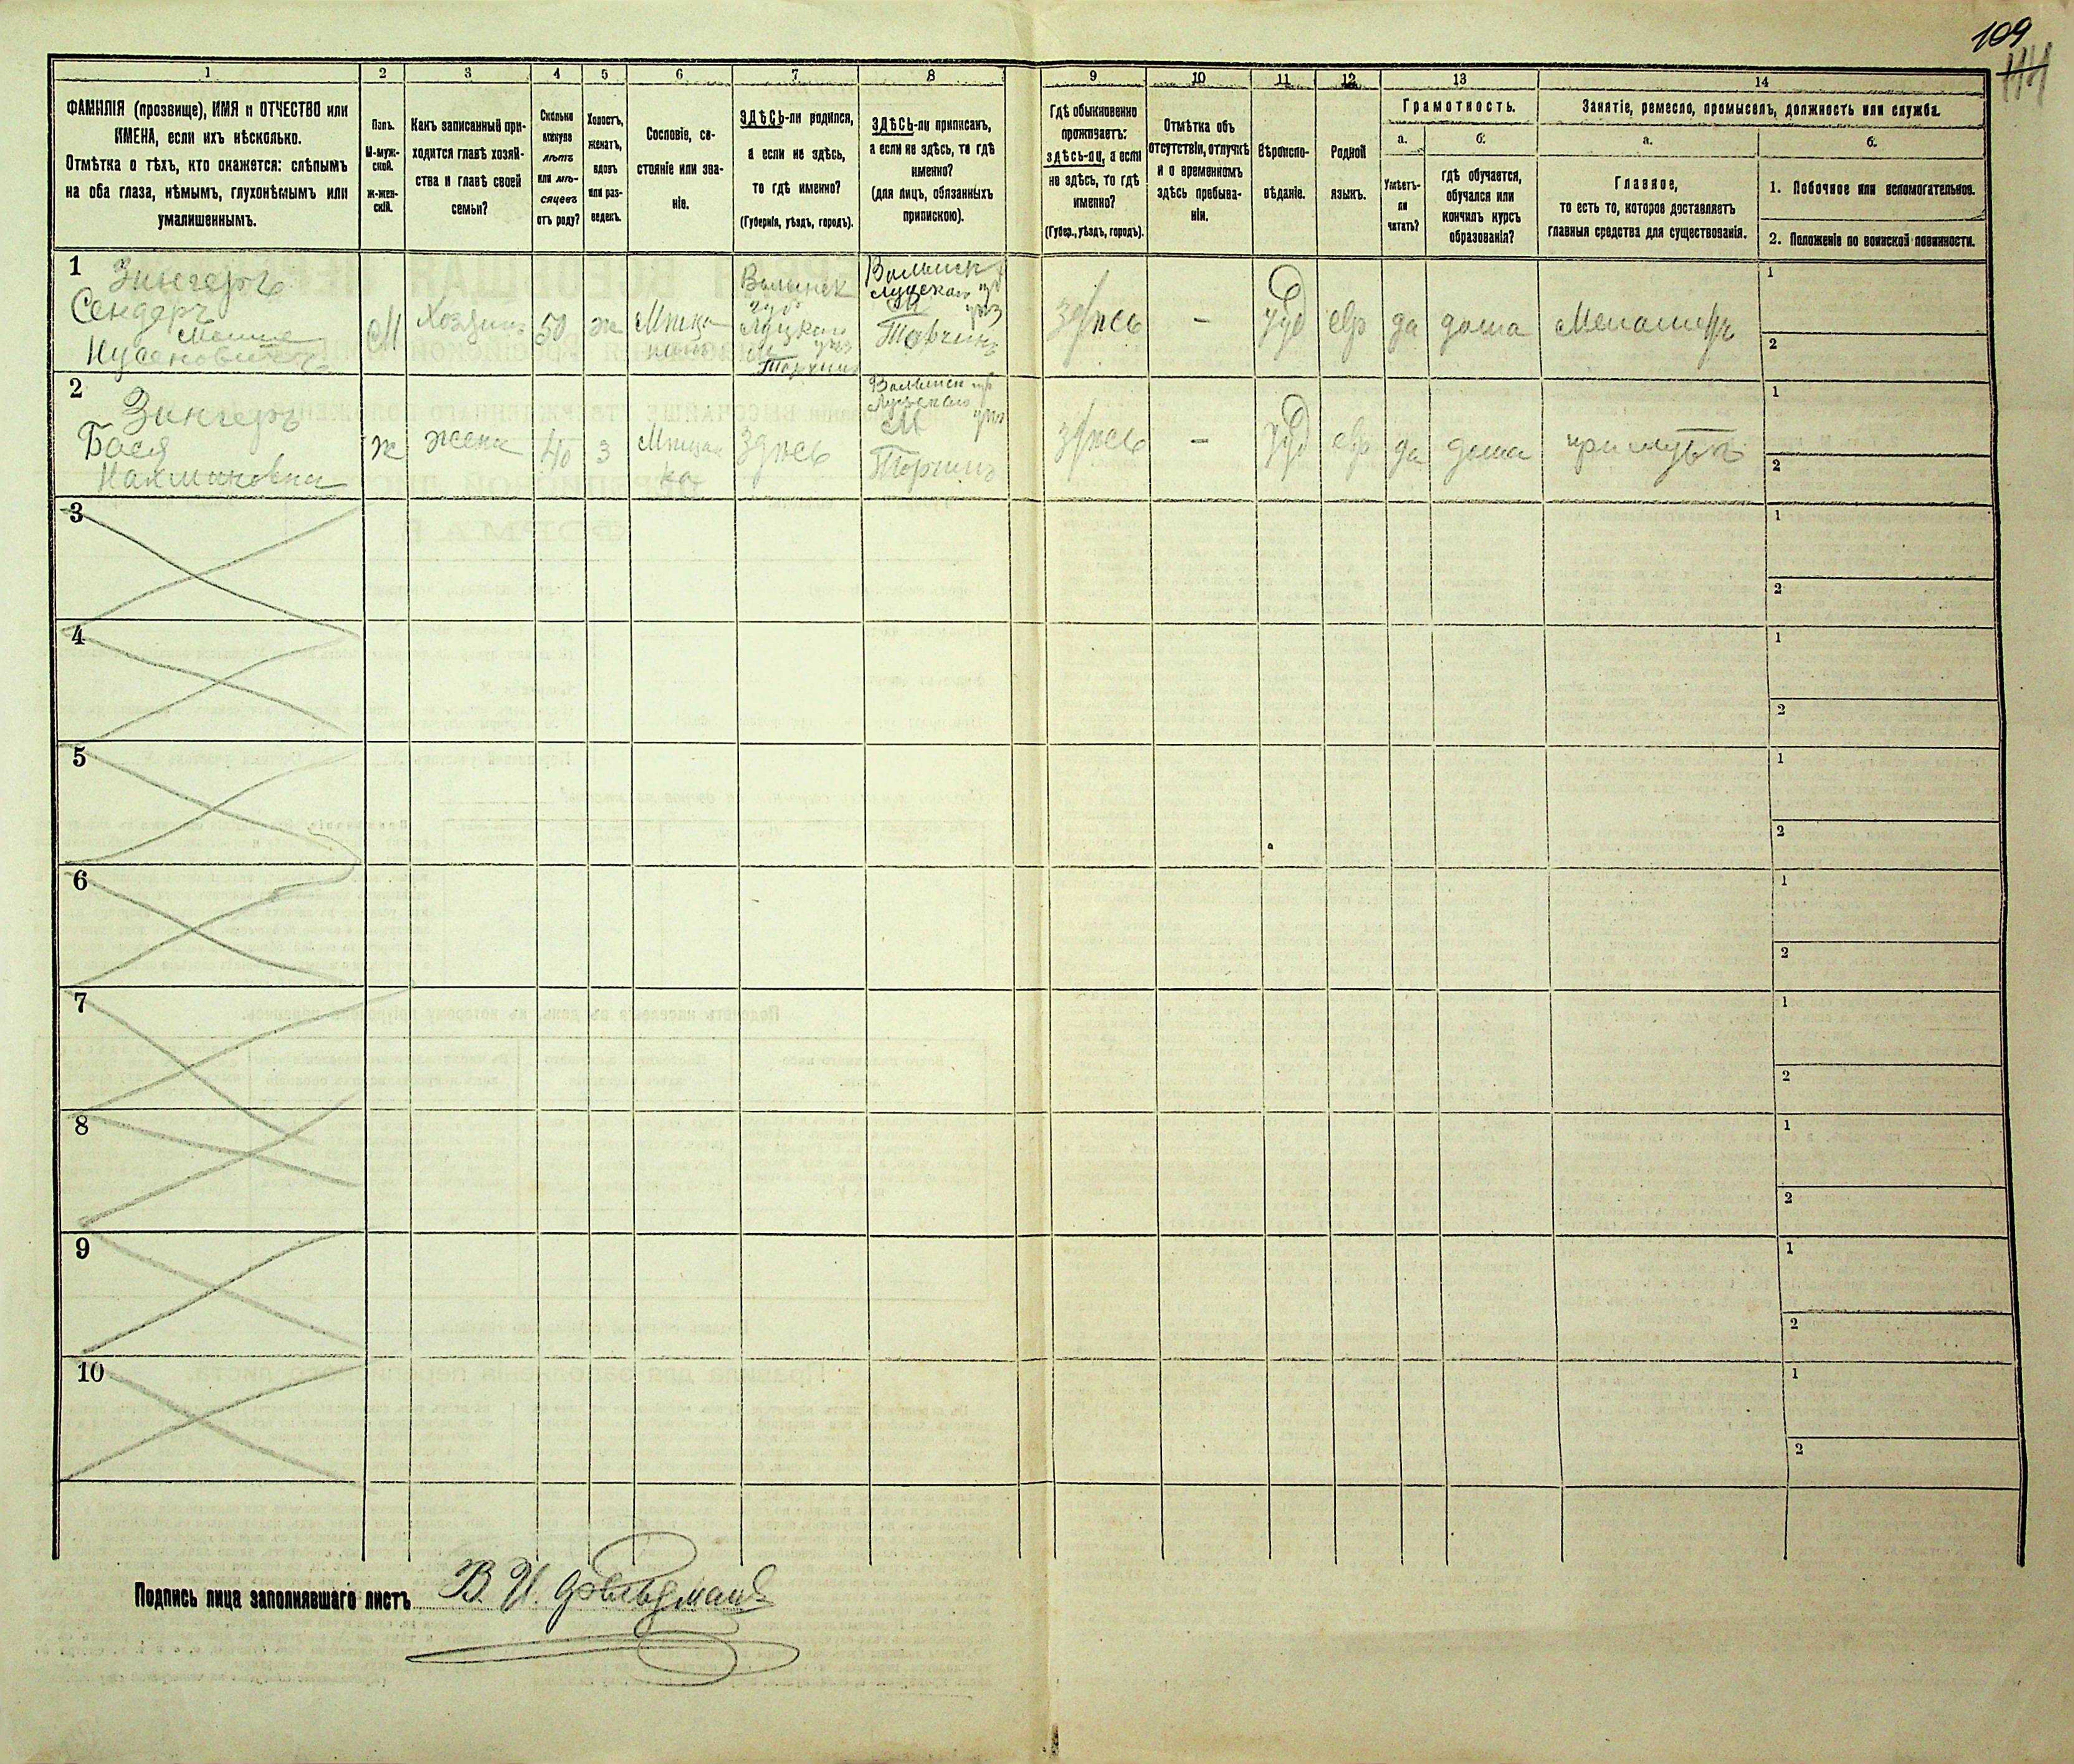 109
1 2 3 4 5 6 7 8 9 10 11 12 13 14
ФАМИЛІЯ (прозвище), ИМЯ и ОТЧЕСТВО или
ИМЕНА, если ихъ нѣсколько.
Отмѣтка о тѣхъ, кто окажется: слѣпымъ
на оба глаза, нѣмымъ, глухонѣмымъ или
умалишеннымъ.
Полъ.
М-муж-
ской.
ж-жен-
скій.
Какъ записанный при-
ходится главѣ хозяй-
ства и главѣ своей
семьи?
Сколько
минуло
лѣтъ
или мѣ-
сяцевъ
отъ роду?
Холостъ,
женатъ,
вдовъ
или раз-
веденъ.
Сословіе, со-
стояніе или зва-
ніе.
ЗДѢСЬ-ли родился,
а если не здѣсь,
то гдѣ именно?
(Губернія, уѣздъ, городъ).
ЗДѢСЬ-ли приписанъ,
а если не здѣсь, то гдѣ
именно?
(для лицъ, обязанныхъ
припискою).
Гдѣ обыкновенно
проживаетъ:
здѣсь-ли, а если
не здѣсь, то гдѣ
именно?
(Губер., уѣздъ, городъ).
Отмѣтка объ
отсутствіи, отлучкѣ
и о временномъ
здѣсь пребыва-
ніи.
Вѣроиспо-
вѣданіе.
Родной
языкъ.
Грамотность.
а.
Умѣетъ-
ли
читать?
б.
гдѣ обучается,
обучался или
кончилъ курсъ
образованія?
Занятіе, ремесло, промыселъ, должность или служба.
а.
Главное,
то есть то, которое доставляетъ
главныя средства для существованія.
б.
1. Побочное или вспомогательное.
2. Положеніе по воинской повинности.
1
Зингеръ
Сендеръ
Мошке
Нусеновичъ
М
Хозяинъ
50
ж
Мѣща
нинъ
Волынск
губ
Луцкаго
уѣз
М
Торчинъ
Волынск
губ
Луцкаго
уѣз
М
Торчинъ
здѣсь
—
Іуд
евр
да
дома
Меламедъ
1
2
2
Зингеръ
Бася
Нахмановна
ж
жена
40
з
Мѣщан
ка
Здѣсь
Волынск губ
Луцкаго
уѣз
М
Торчинъ
здѣсь
—
Іуд
евр
да
дома
при мужѣ
1
2
3
1
2
4
1
2
5
1
2
6
1
2
7
1
2
8
1
2
9
1
2
10
1
2
Подпись лица заполнявшаго листъ В. И. Фельдманъ